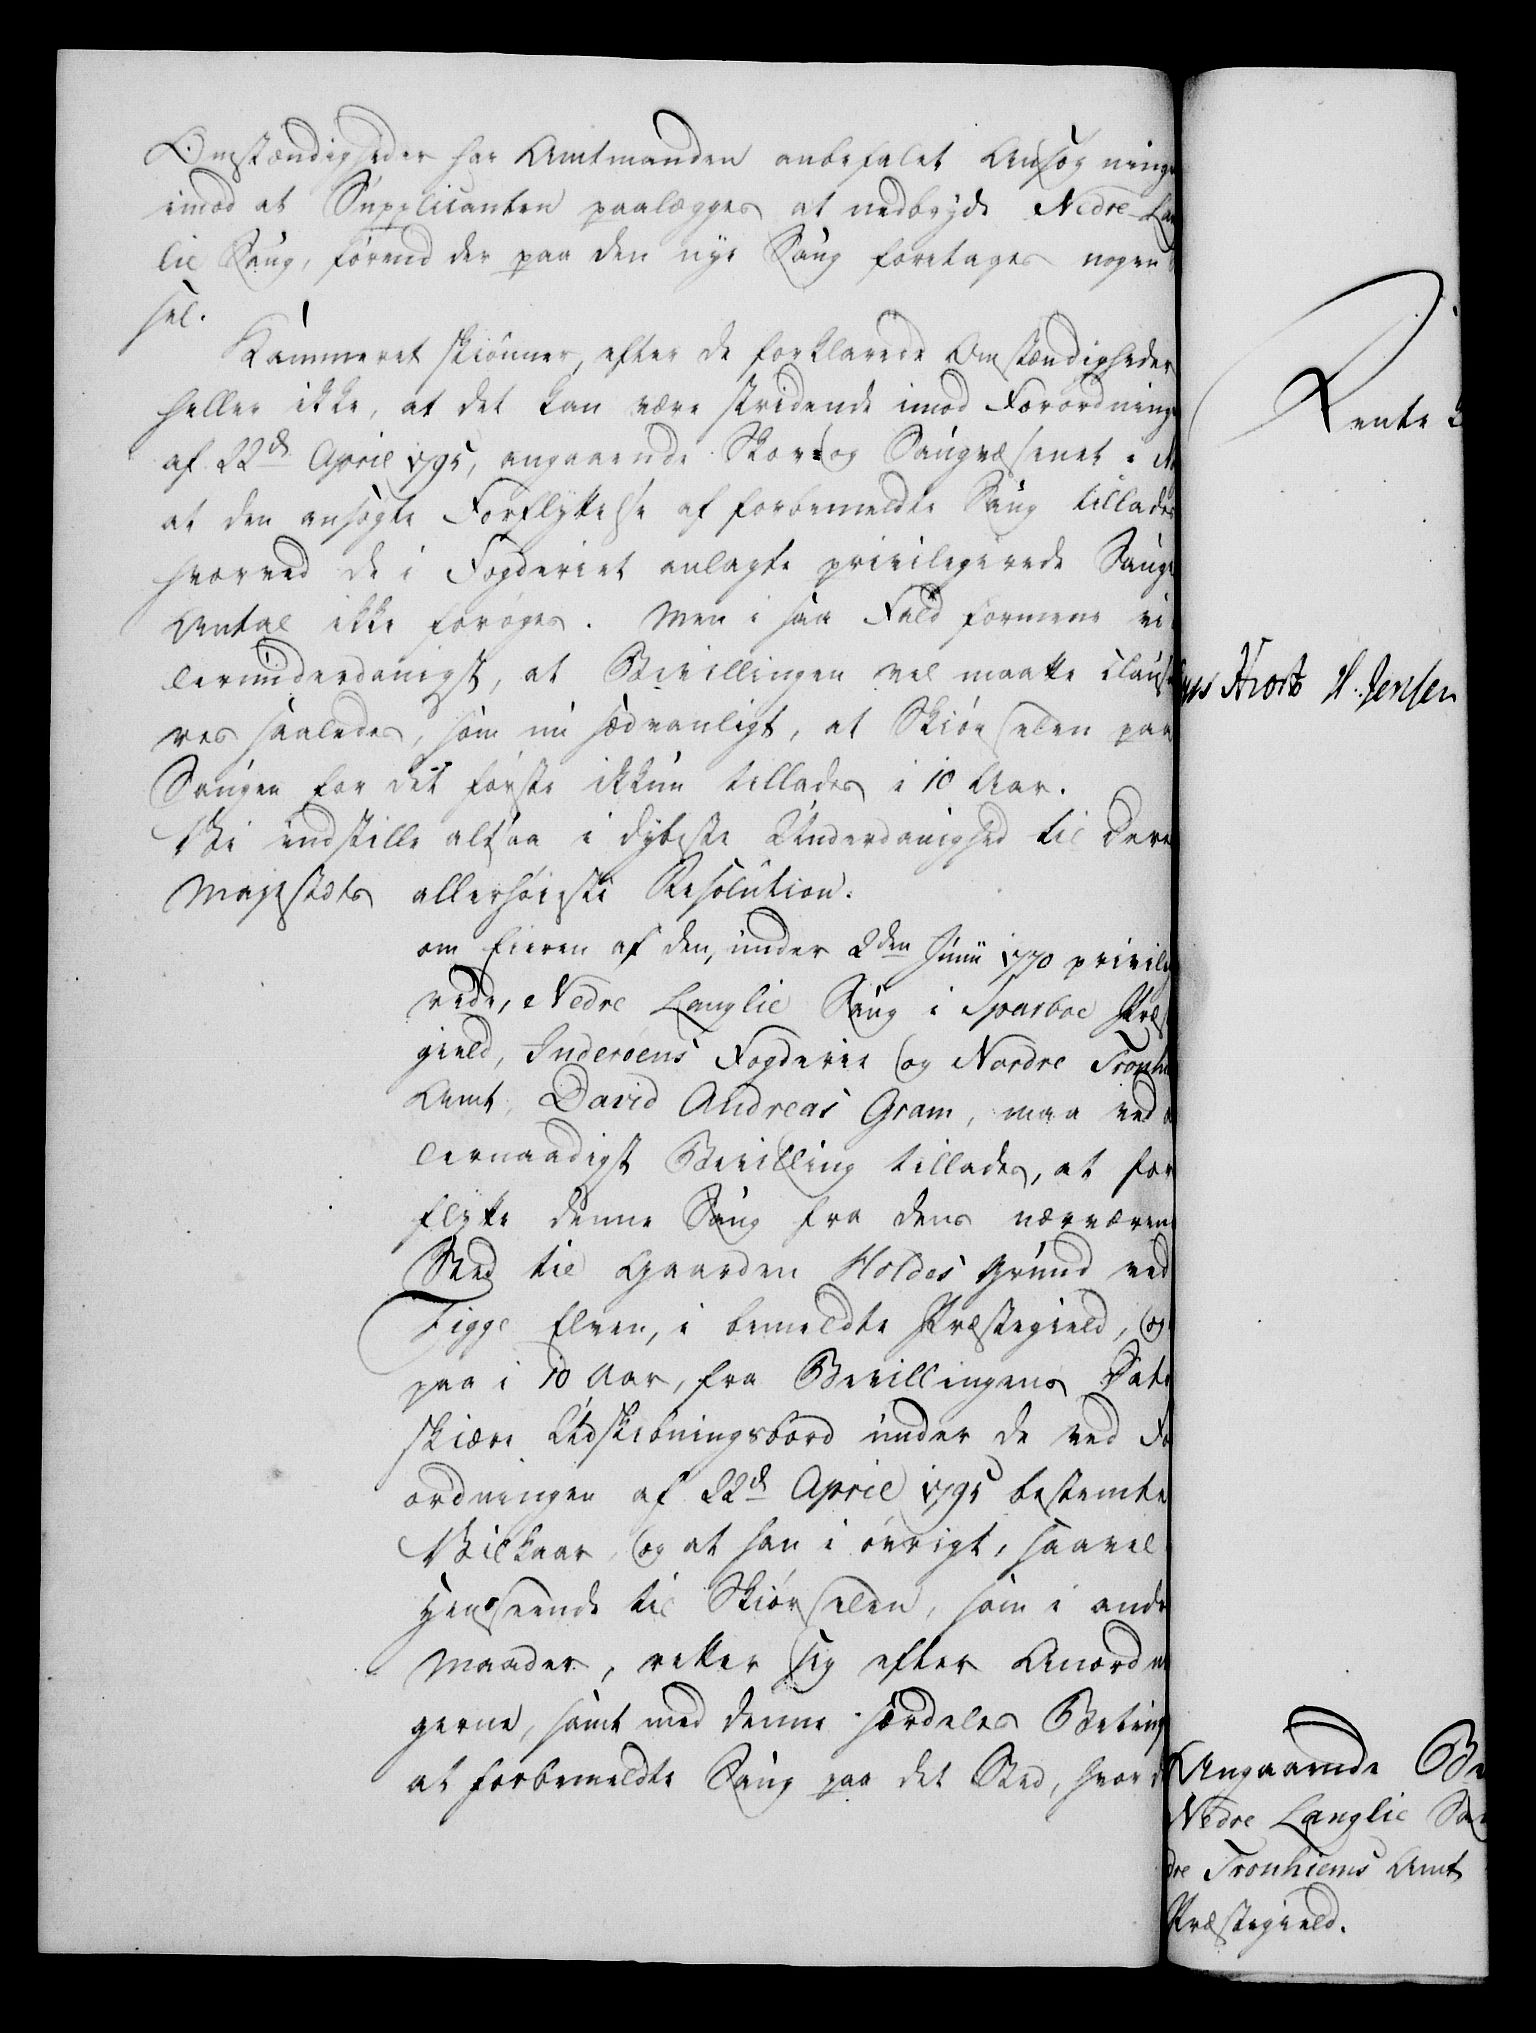 Omstændigheder har Amtmanden anbefalet Ansøgning
imod at Supplicanten paalægges at nedbryde Nedre Lan
lie Saug, førend der paa den nye Saug foretages nogen
sel.
Kammeret skiønner, efter de forklarede Omstændigheder
heller ikke, at det kan være stridende imod Forordning
af 22de April 1795, angaaende Skov- og Saugvæsenet i No
at den ansøgte Forflyttelse af forbemeldte Saug tillades
hvorved de i Fogderiet anlagte privilegerede Sauge
Antal ikke forøges. Men i saa Fald formene vi
lerunderdanigst, at Bevillingen vel maatte clausu
res saaledes, som nu sædvanligt, at Skiørselen paa
Saugen for det første ikkun tillades i 10 Aar.
Vi indstille altsaa i dybeste Underdanighed til Deres
Majestæts allerhøieste Resolution.
om Eieren af den, under 2den Junii 1770 privileg
rede, Nedre Langlie Saug i Sparboe Præs
gield, Inderøens Fogderie og Nordre Tronhi
Amt, David Andreas Gram, maa ved a
lernaadigst Bevilling tillades, at for
flytte denne Saug fra dens nærværen
Sted til Gaarden Holdes Grund ved
Figge Elven, i bemeldte Præstegield, og
paa i 10 Aar, fra Bevillingens Dato
skiære Udskibningsbord under de ved Fo
ordningen af 22de April 1795 bestemte
Vilkaar, og at han i øvrigt, saavel
Henseende til Skiørselen, som i andr
Maader, retter sig efter Anordni
gerne, samt med denne særdeles Beting
at forbemeldte Saug paa det Sted, hvor d
Rente
Hvort H. Jensen
Angaaende Be
Nedre Langlie Sau
dre Tronhiems Amt
Præstegield.